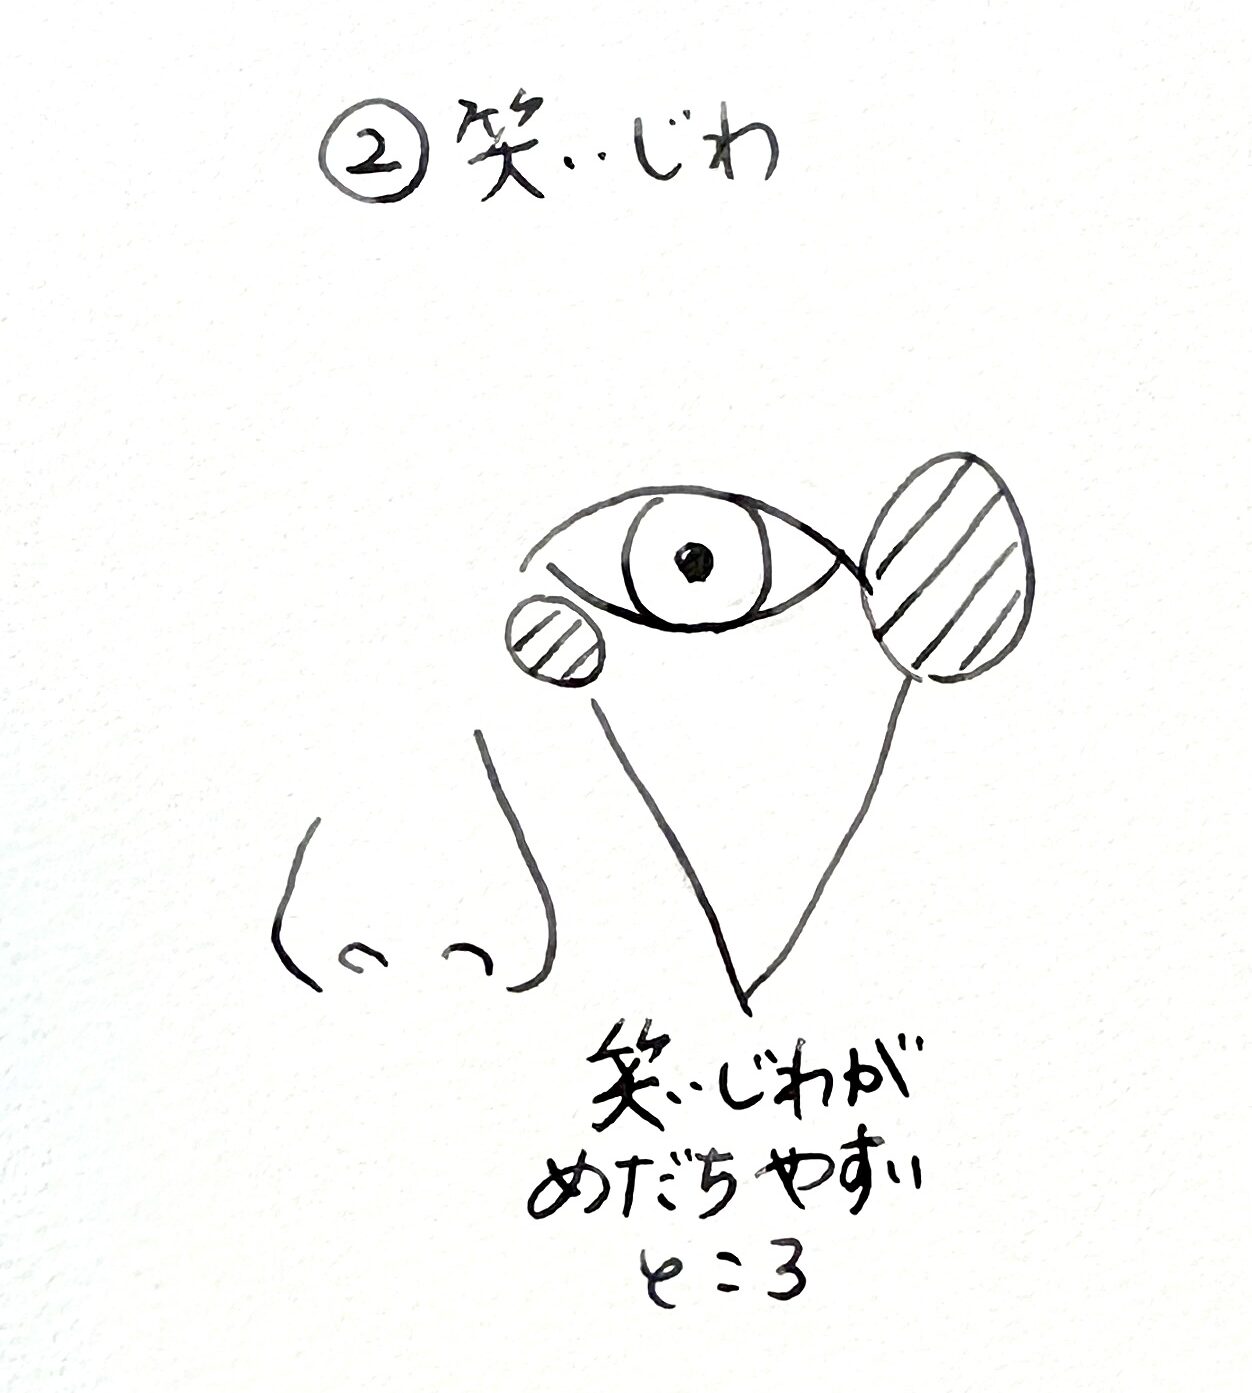 ② 笑いじわ
笑いじわが
めだちやすい
ところ